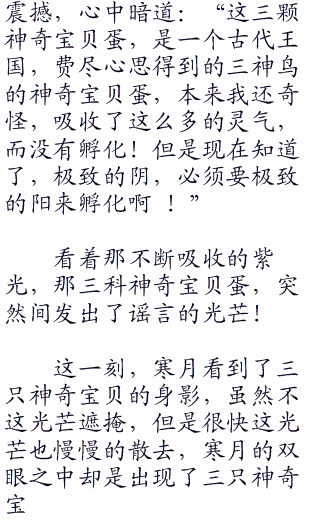 震撼，心中暗道：“这三颗
神奇宝贝蛋，是一个古代王
国，费尽心思得到的三神鸟
的神奇宝贝蛋，本来我还奇
怪，吸收了这么多的灵气，
而没有孵化！但是现在知道
了，极致的阴，必须要极致
的阳来孵化啊 ！”
看着那不断吸收的紫
光，那三科神奇宝贝蛋，突
然间发出了谣言的光芒！
这一刻，寒月看到了三
只神奇宝贝的身影，虽然不
这光芒遮掩，但是很快这光
芒也慢慢的散去，寒月的双
眼之中却是出现了三只神奇
宝